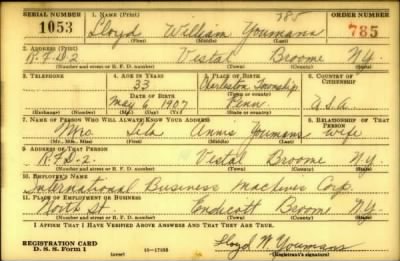 785
SERIAL NUMBER 1. NAME (Print) ORDER NUMBER
1053 Lloyd William Youmans 785
(First) (Middle) (Last)
2. ADDRESS (Print)
R.F.D 2 Vestal Broome N.Y.
(Number and street or R. F. D. number) (Town) (County) (State)
3. TELEPHONE 4. AGE IN YEARS 5. PLACE OF BIRTH 6. COUNTRY OF CITIZENSHIP
33 Charleston Township
DATE OF BIRTH (Town or county)
May 6 1907 Penn. U.S.A.
(Exchange) (Number) (Mo.) (Day) (Yr.) (State or country)
7. NAME OF PERSON WHO WILL ALWAYS KNOW YOUR ADDRESS 8. RELATIONSHIP OF THAT PERSON
Mrs. Annis Youmans wife
(Mr., Mrs., Miss) (First) (Middle) (Last)
9. ADDRESS OF THAT PERSON
R.F.D-2. Vestal Broome N.Y.
(Number and street or R. F. D. number) (Town) (County) (State)
10. EMPLOYER'S NAME
International Business Machines Corp.
11. PLACE OF EMPLOYMENT OR BUSINESS
North St. Endicott Broom N.Y.
(Number and street or R. F. D. number) (Town) (County) (State)
I AFFIRM THAT I HAVE VERIFIED ABOVE ANSWERS AND THAT THEY ARE TRUE.
REGISTRATION CARD
D. S. S. Form 1 (over) Lloyd W. Youmans
(Registrant's signature)